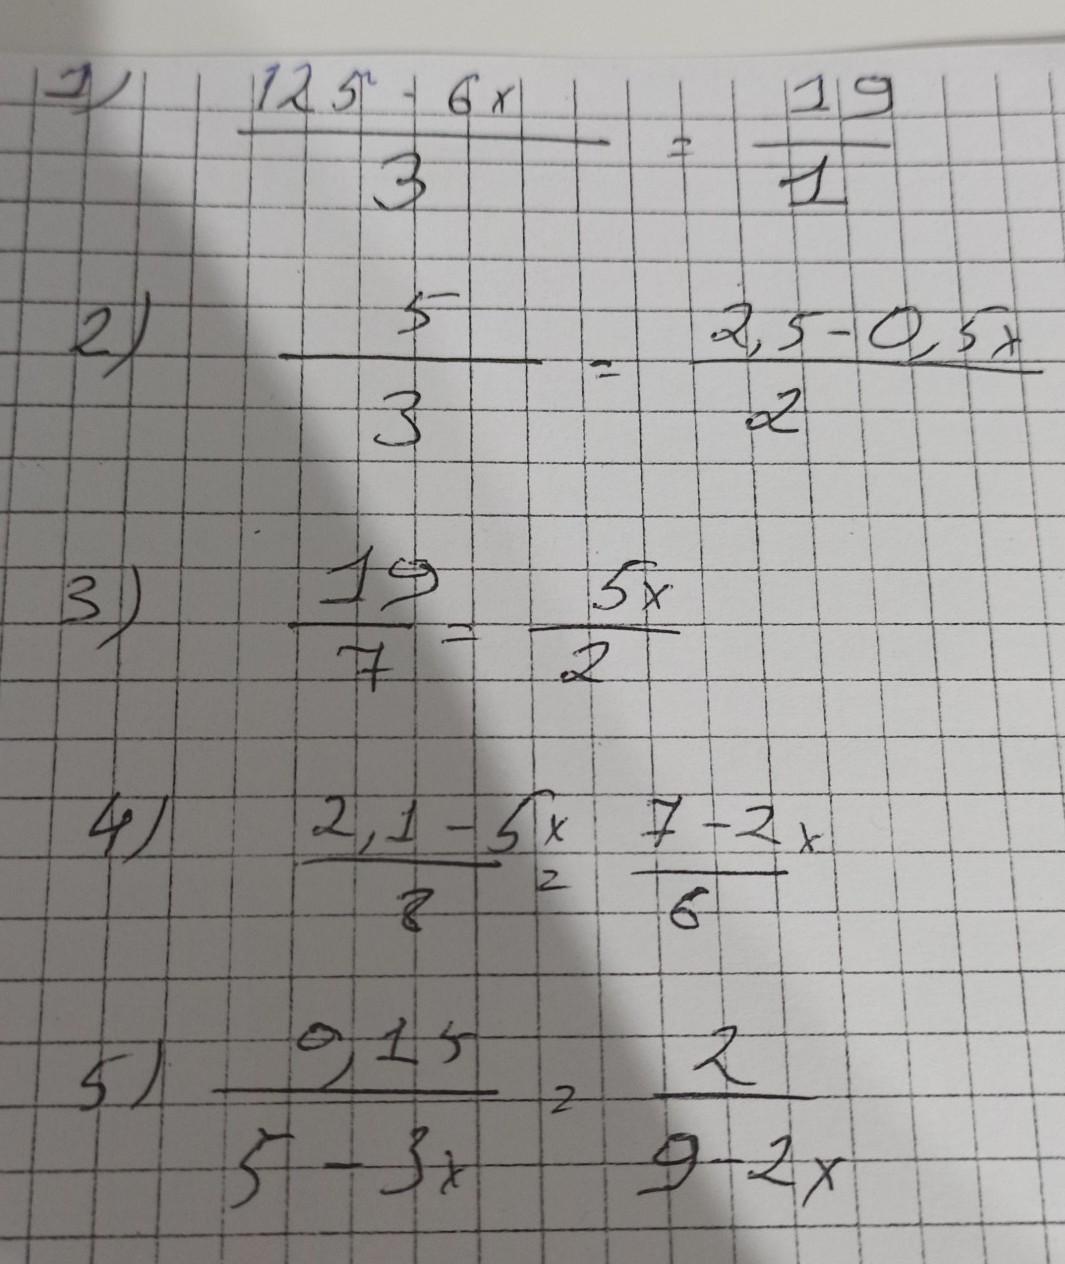 1) 125 - 6x / 3 = 19 / 1
2) 5 / 3 = 2,5 - 0,5x / 2
3) 19 / 7 = 5x / 2
4) 2,1 - 5x / 8 = 7 - 2x / 6
5) 0,15 / 5 - 3x = 2 / 9 - 2x